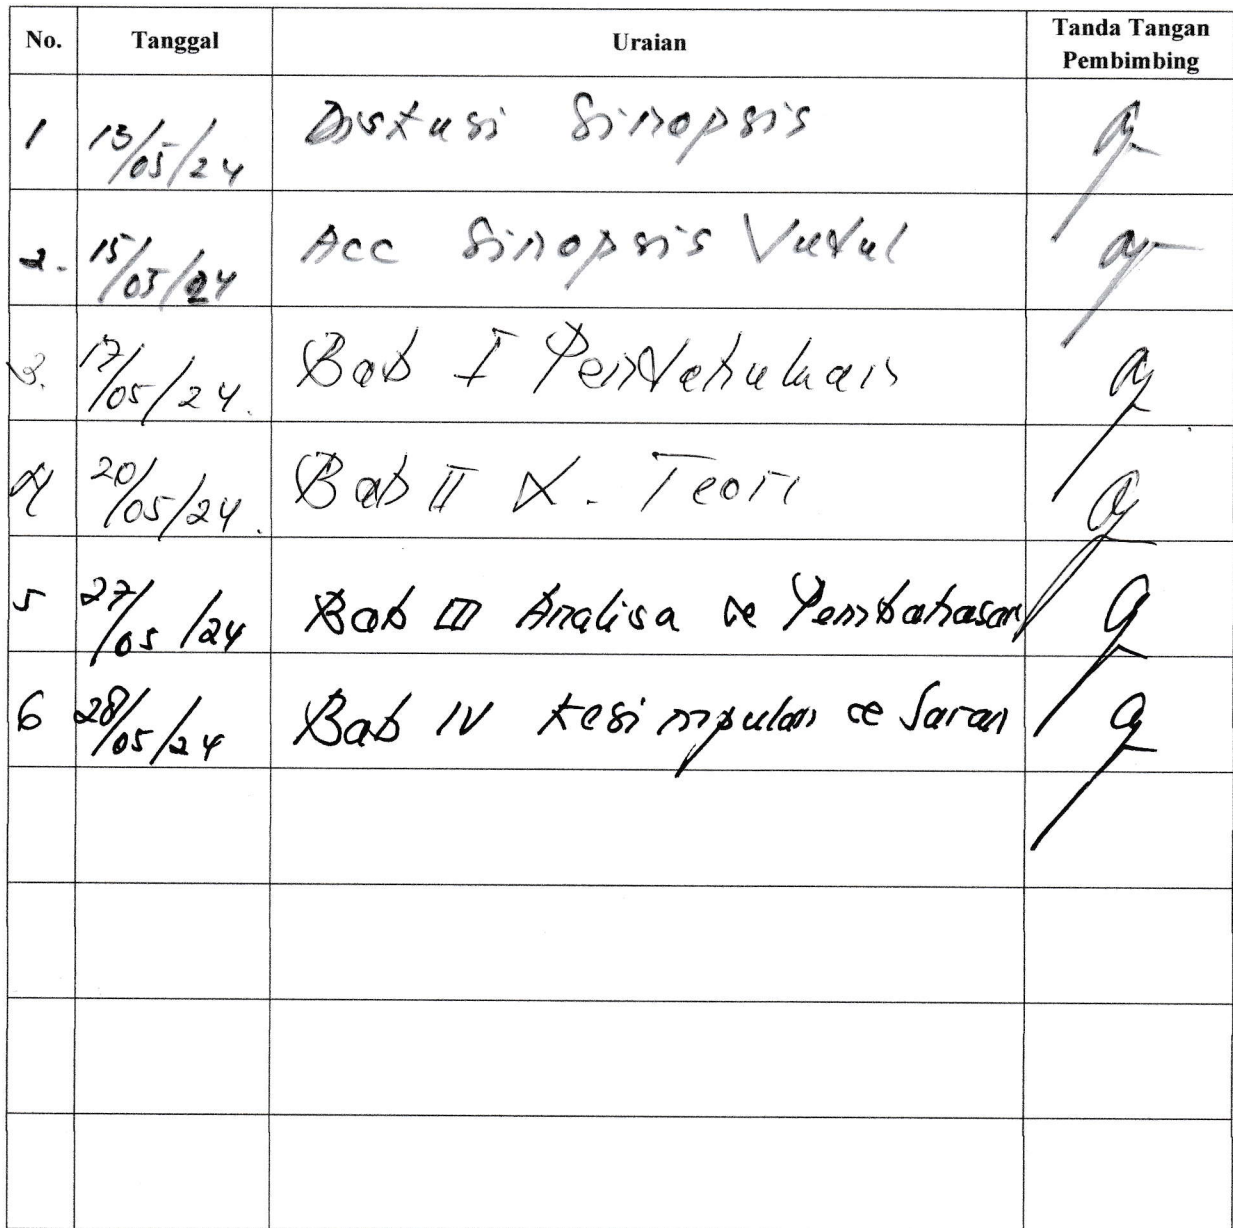 No. Tanggal Uraian Tanda Tangan Pembimbing
1 13/05/24 Diskusi Sinopsis
2. 15/05/24 Acc Sinopsis Judul
3. 17/05/24. Bab I Pendahuluan
4 20/05/24. Bab II L. Teori
5 27/05/24 Bab III Analisa & Pembahasan
6 28/05/24 Bab IV Kesimpulan & Saran